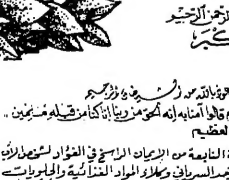 الرحمن الرحيم
أعوذ بالله من الشيطان الرجيم
قالوا آمنا به إنه الحق من ربنا إنا كنا من قبله مسلمين ،،
العظيم
النابعة من الإيمان الراسخ في الفؤاد لشخص
السرماني وكلاء المواد الغذائية والحلويات